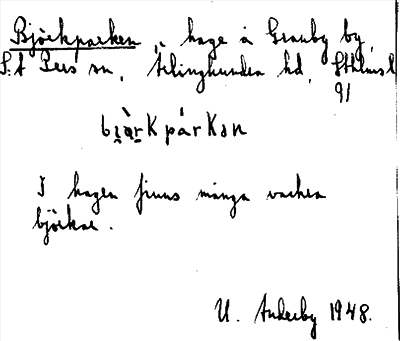 Björkparken, hage å Granby by,
S:t Pers sn, Ärlinghundra hd, Sthlms l
91
bi̯ö̀rkpárkan
I hagen finns många vackra
björkar.
U. Anderby 1948.